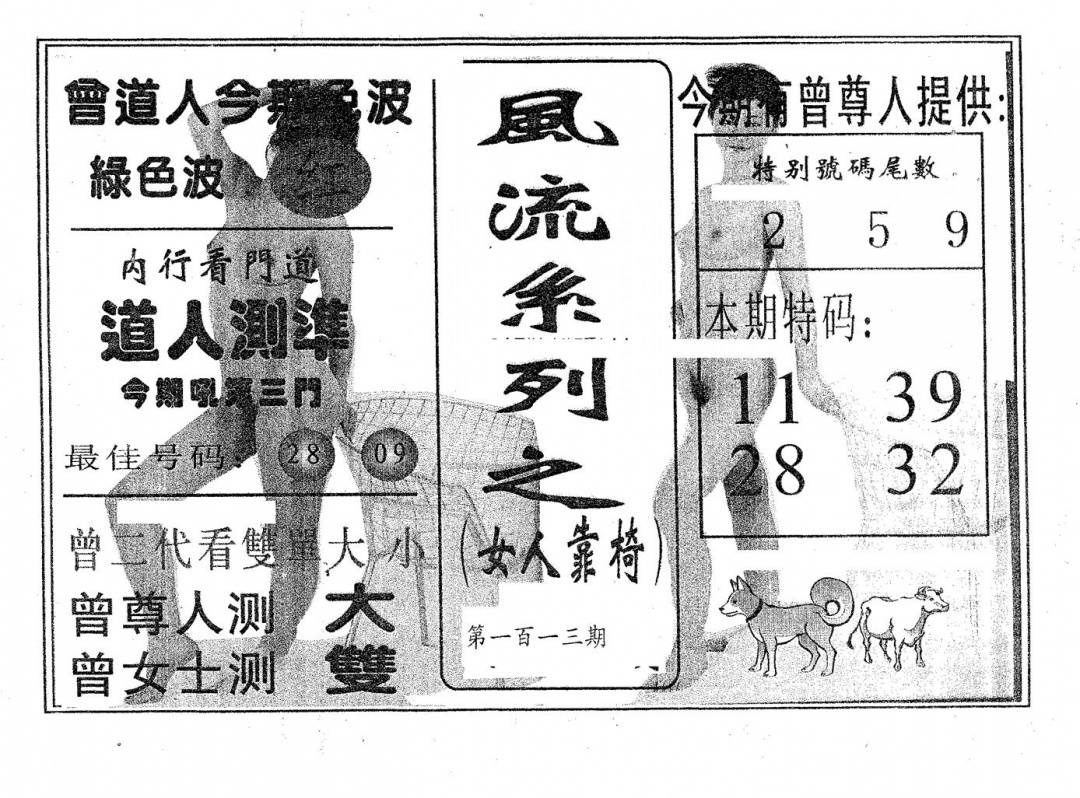 曾道人今期色波
綠色波 红
内行看門道
道人測準
今期吼實三門
最佳号码: 28 09
曾二代看雙單大小
曾尊人测 大
曾女士测 雙
風流系列之
(女人靠椅)
第一百一三期
今期有曾尊人提供:
特别號碼尾數
2 5 9
本期特码:
11 39
28 32